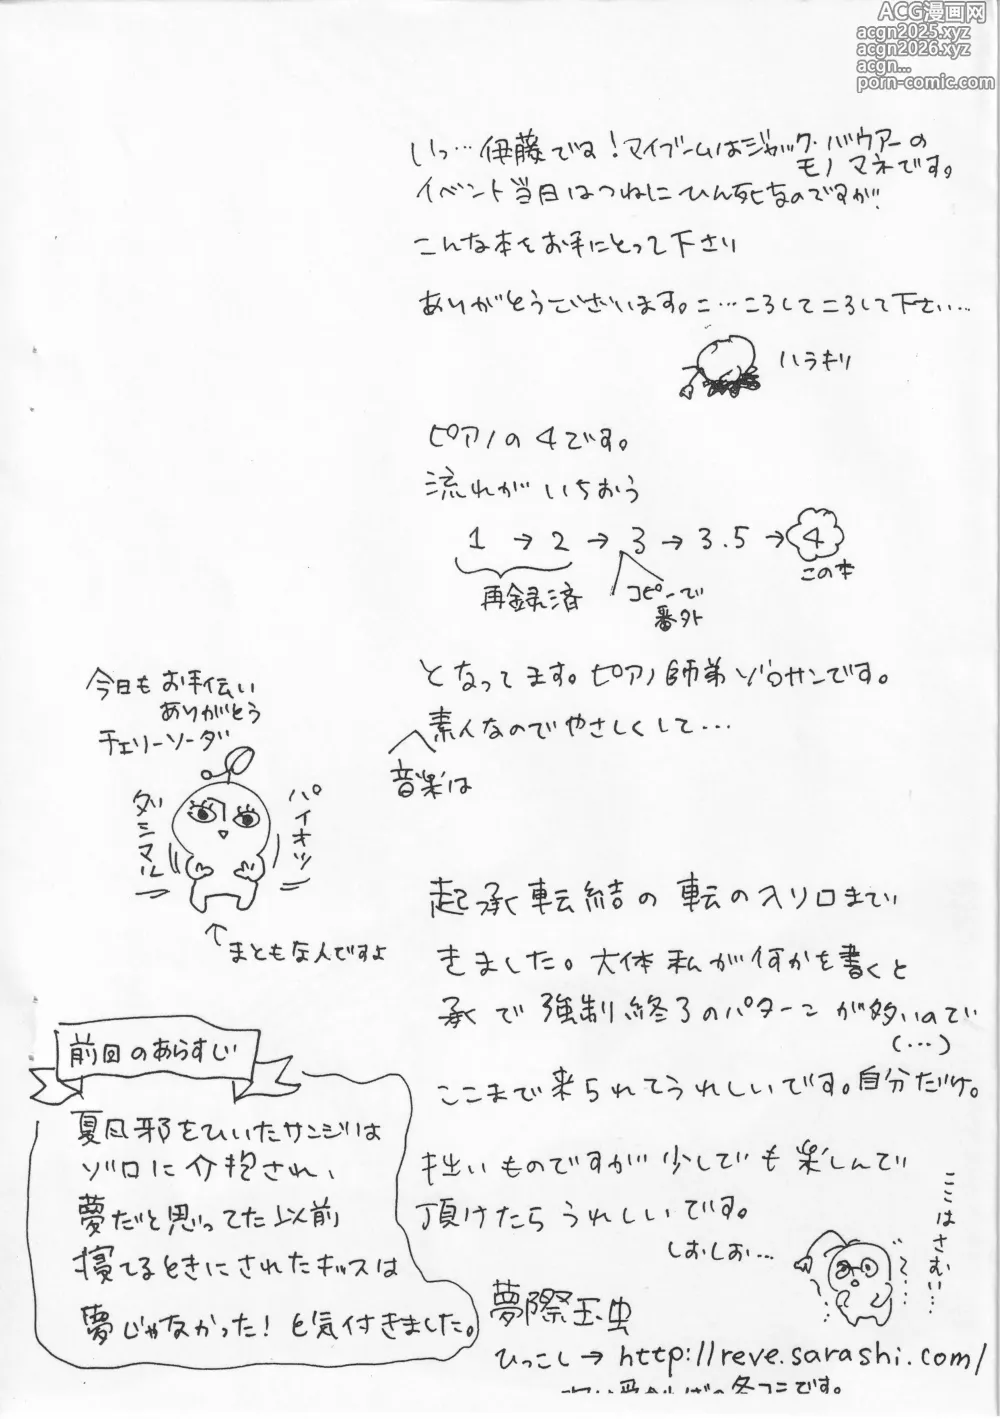 ACG漫画网
acgn2025.xyz
acgn2026.xyz
acgn...
porn-comic.com
いっ…伊藤です！マイブームはジャック・バウアーの
モノマネです。
イベント当日はつねにひん死なのですが
こんな本をお手にとって下さり
ありがとうございます。こ…ころしてころして下さい…
ハラキリ
ピアノの4です。
流れがいちおう
1→2→3→3.5→4
この本
再録済
コピーで
番外
となってます。ピアノ師弟ゾロサンです。
素人なのでやさしくして…
音楽は
今日もお手伝い
ありがとう
チェリーソーダ
パイオツ
ダシマル
まともな人ですよ
起承転結の転の入り口まで
きました。大体私が何かを書くと
承で強制終了のパターンが多いので
(…)
ここまで来られてうれしいです。自分だけ。
拙いものですが少しでも楽しんで
頂けたらうれしいです。
しおしお…
ここはさむい…
夢際玉虫
ひっこし→http://reve.sarashi.com/
の冬コミです。
前回のあらすじ
夏風邪をひいたサンジは
ゾロに介抱され、
夢だと思ってた以前
寝てるときにされたキッスは
夢じゃなかった！と気付きました。